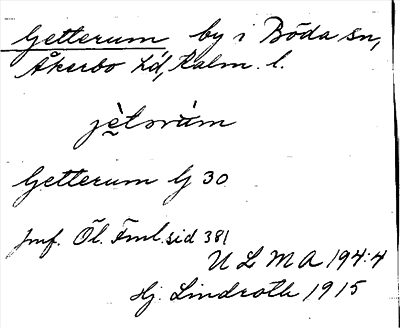 Getterum by i Böda sn,
Åkerbo hd, Kalm. l.
jètsrùm
Getterum G 30
jmf. Öl. Fml. sid 381
U L M A 194:4
Hj. Lindroth 1915